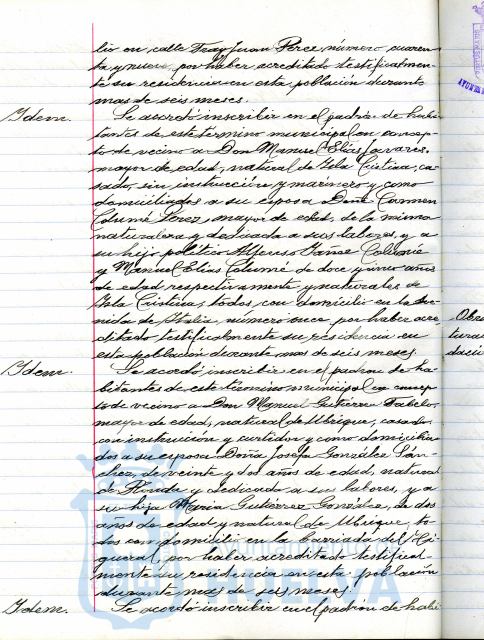 lio en calle Fray Juan Pérez, número cuaren-
ta y nueve, por haber acreditado testificalmen-
te su residencia en esta población durante
mas de seis meses.
Idem. Se acordó inscribir en el padrón de habi-
tantes de este término municipal en concep-
to de vecino a Don Manuel Elías Javares,
mayor de edad, natural de Isla Cristina, ca-
sado, sin instrucción y marinero y como
domiciliados a su esposa Doña Carmen
Columé Pérez, mayor de edad, de la misma
naturaleza y dedicada a sus labores, y a
su hijo político Alfonso Columé
y Manuel Elías Columé de doce y años
de edad respectivamente y naturales de
Isla Cristina, todos con domicilio en la Ave-
nida de Italia, número once, por haber acre-
ditado testificalmente su residencia en
esta población durante mas de seis meses.
Idem. Se acordó inscribir en el padrón de ha-
bitantes de este término municipal en concep-
to de vecino a Don Manuel Gutiérrez Fabelo,
mayor de edad, natural de Ubrique, casado
con instrucción y curtidor y como domicilia-
dos a su esposa Doña Josefa González Sán-
chez, de veinte y dos años de edad, natural
de y dedicada a sus labores, y a
su hija María Gutiérrez González, de dos
años de edad y natural de Ubrique, to-
dos con domicilio en la barriada del Hi-
gueral, por haber acreditado testifical-
mente su residencia en esta población
durante mas de seis meses.
Idem. Se acordó inscribir en el padrón de habi-